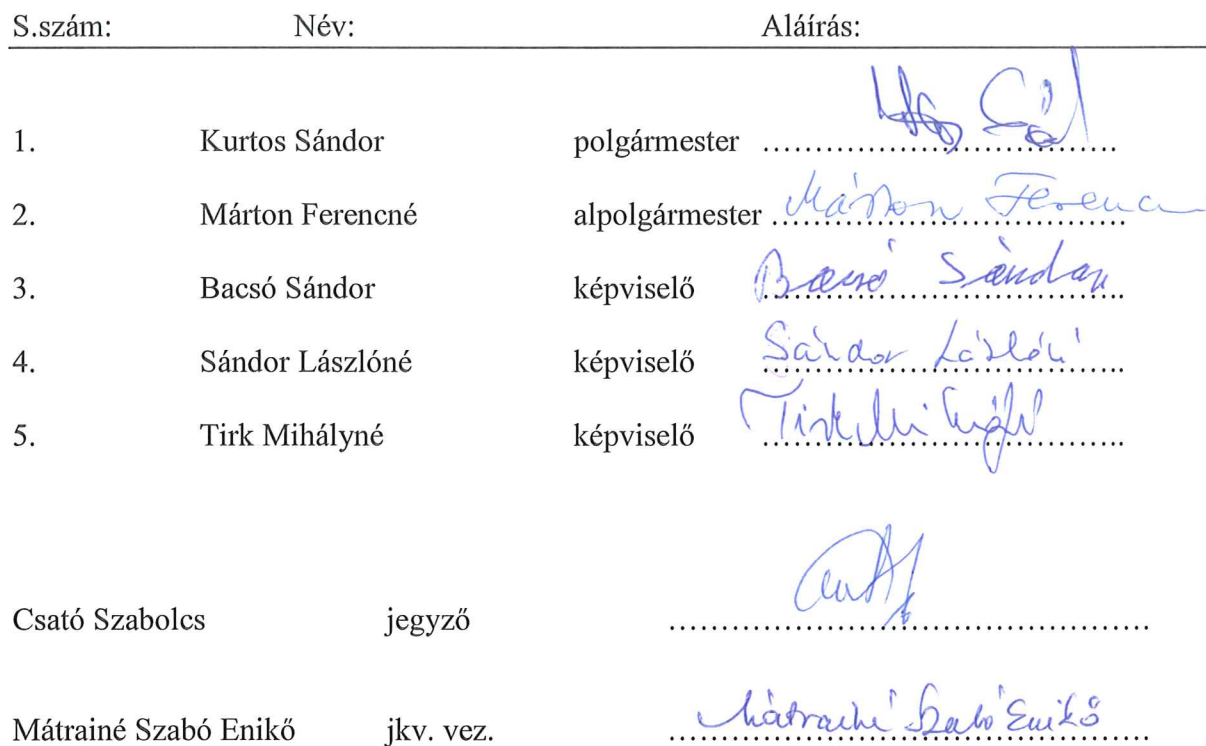 S.szám: Név: Aláírás:
1. Kurtos Sándor polgármester ..........................................
2. Márton Ferencné alpolgármester Márton Ferencn
3. Bacsó Sándor képviselő Bacsó Sándor
4. Sándor Lászlóné képviselő Sándor Lászlóné
5. Tirk Mihályné képviselő Tirk Mihályné
Csató Szabolcs jegyző ..........................................
Mátrainé Szabó Enikő jkv. vez. Mátrainé Szabó Enikő